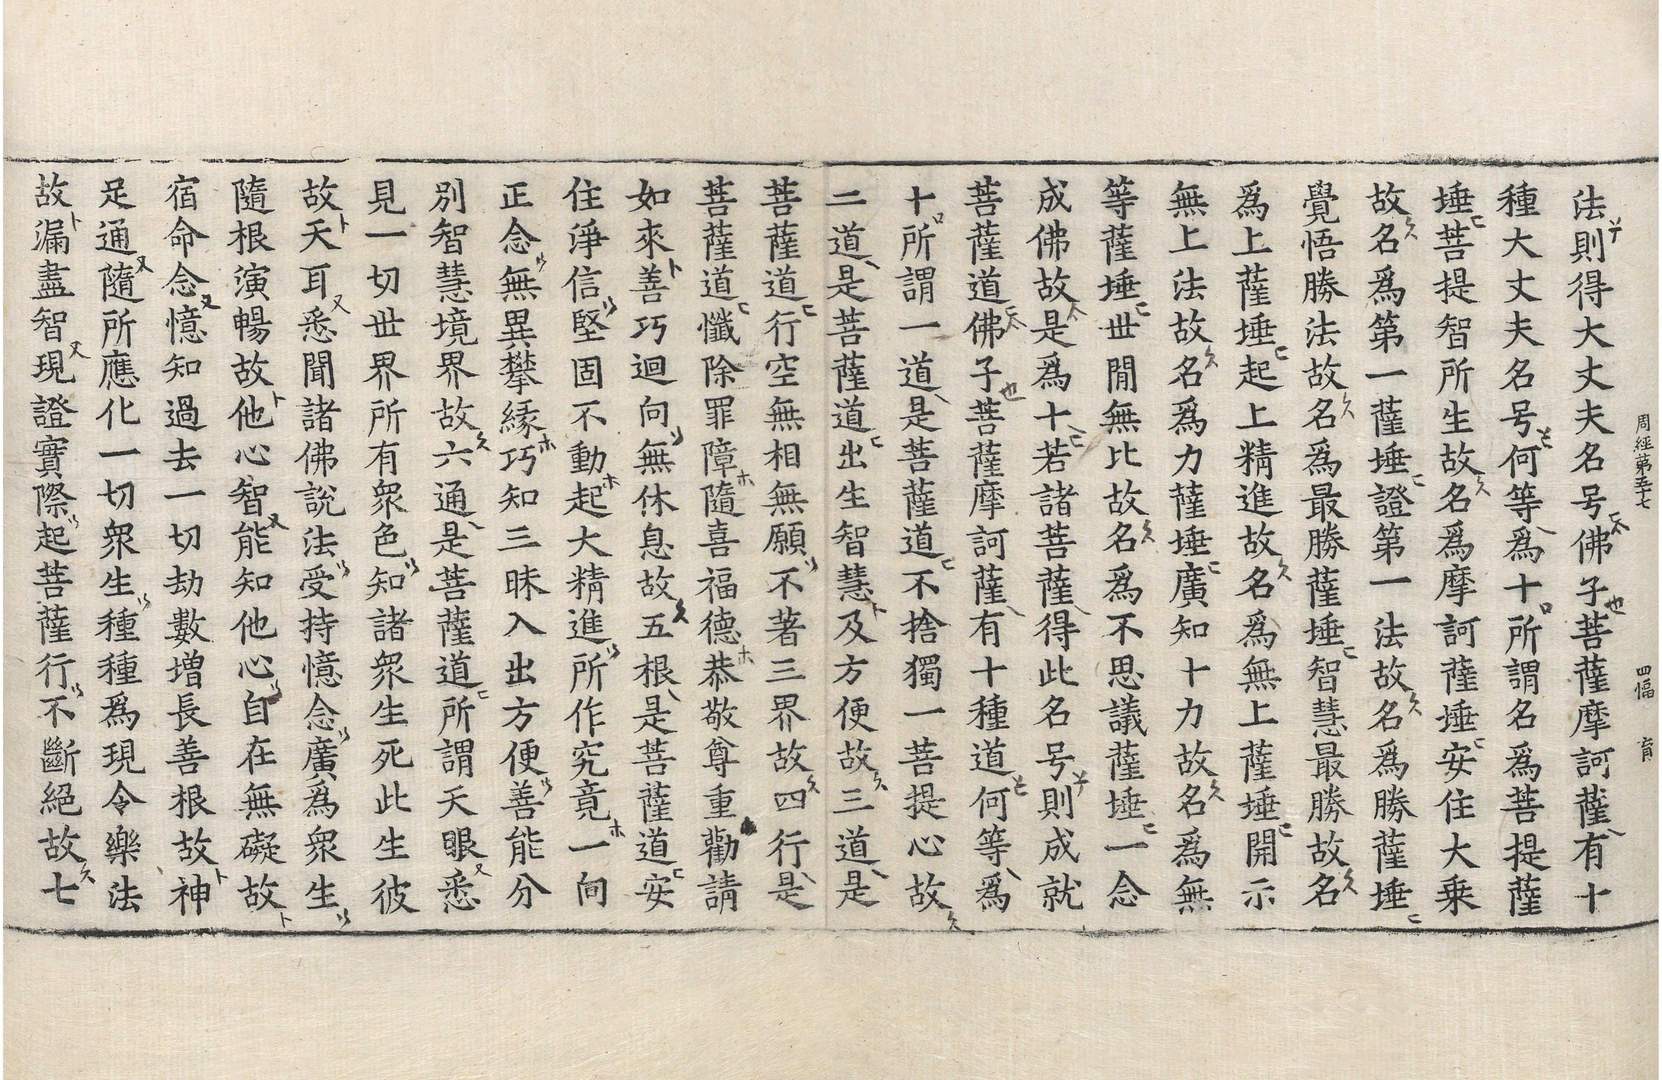 周經第五十七 四幅 育
法則得大丈夫名号佛子菩薩摩訶薩有十
種大丈夫名号何等爲十所謂名爲菩提薩
埵菩提智所生故名爲摩訶薩埵安住大乗
故名爲第一薩埵證第一法故名爲勝薩埵
覺悟勝法故名爲最勝薩埵智慧最勝故名
爲上薩埵起上精進故名爲無上薩埵開示
無上法故名爲力薩埵廣知十力故名爲無
等薩埵世閒無比故名爲不思議薩埵一念
成佛故是爲十若諸菩薩得此名号則成就
菩薩道佛子菩薩摩訶薩有十種道何等爲
十所謂一道是菩薩道不捨獨一菩提心故
二道是菩薩道出生智慧及方便故三道是
菩薩道行空無相無願不著三界故四行是
菩薩道懺除罪障隨喜福德恭敬尊重勸請
如來善巧迴向無休息故五根是菩薩道安
住淨信堅固不動起大精進所作究竟一向
正念無異攀緣巧知三昧入出方便善能分
別智慧境界故六通是菩薩道所謂天眼悉
見一切世界所有衆色知諸衆生死此生彼
故天耳悉聞諸佛說法受持憶念廣爲衆生
隨根演暢故他心智能知他心自在無礙故
宿命念憶知過去一切劫數增長善根故神
足通隨所應化一切衆生種種爲現令樂法
故漏盡智現證實際起菩薩行不斷絕故七